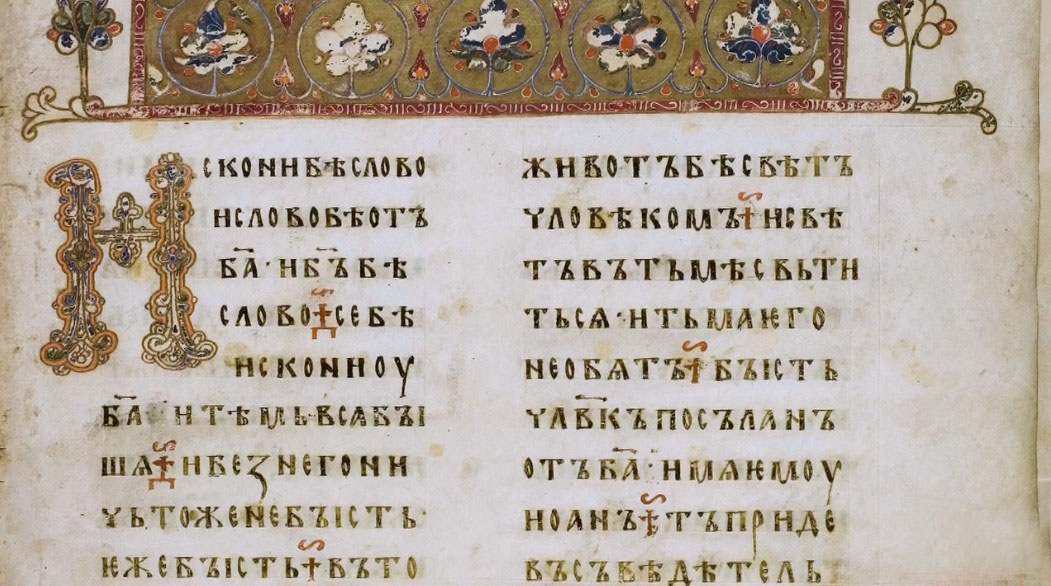 ИСКОНИБѢСЛОВО
ИСЛОВОБѢОТЪ
Б҃А·ИБ҃ЪБѢ
СЛОВО⁘СЕБѢ
ИСКОНИОУ
Б҃АИТѢМЬВСѦБꙐ
ШѦ⁘ИБЕЗНЕГОНИ
ЧЬТОЖЕНЕБꙐСТЬ·
ѤЖЕБꙐСТЬ⁘ВЪТО
ЖИВОТЪБѢСВѢТЪ
ЧЛОВѢКОМЪ⁘ИСВѢ
ТЪВЪТЬМѢСВЬТИ
ТЬСѦ·ИТЬМАѤГО
НЕОБѦТЪ⁘БꙐСТЬ
ЧЛВ҃КЪПОСЪЛАНЪ
ОТЪБ҃А·ИМѦѤМОУ
ИОАНЪ⁘ТЪПРИДЕ
ВЪСЪВѢДѢТЕЛЬ